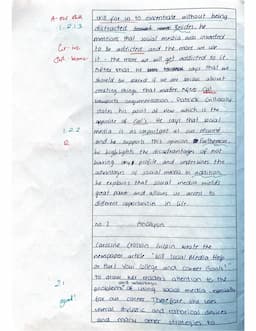 skill for us to concentrate without being
distracted. Besides, he
mentions that social media was invented
to be addicted and the more we use
it - the more we will get addicted to it.
says that we
should be scared if we are serious about
creating things that matter. After Cal
argumentation - Patrick Gillooly
states his point of view which is the
opposite of Cal's. He says that social
media is as important as our
and he supports this opinion. Furthermore,
he highlights the disadvantages of not
having any profile and underlines the
advantages of social media. In addition,
he explains that social media wields
great power and allows us access to
different opportunities in life.
no. 2 Analysis
Caroline Crosson Gilpin wrote the
newspaper article "Will Social Media Help
or Hurt Your College and Career Goals"
to draw her readers attention to the
problems and advantages of using social media, especially
for our career. Therefore, she uses
several stylistic and rhetorical devices
and many other strategies to
1.2.1.3
1.2.2
R
2.1
good!